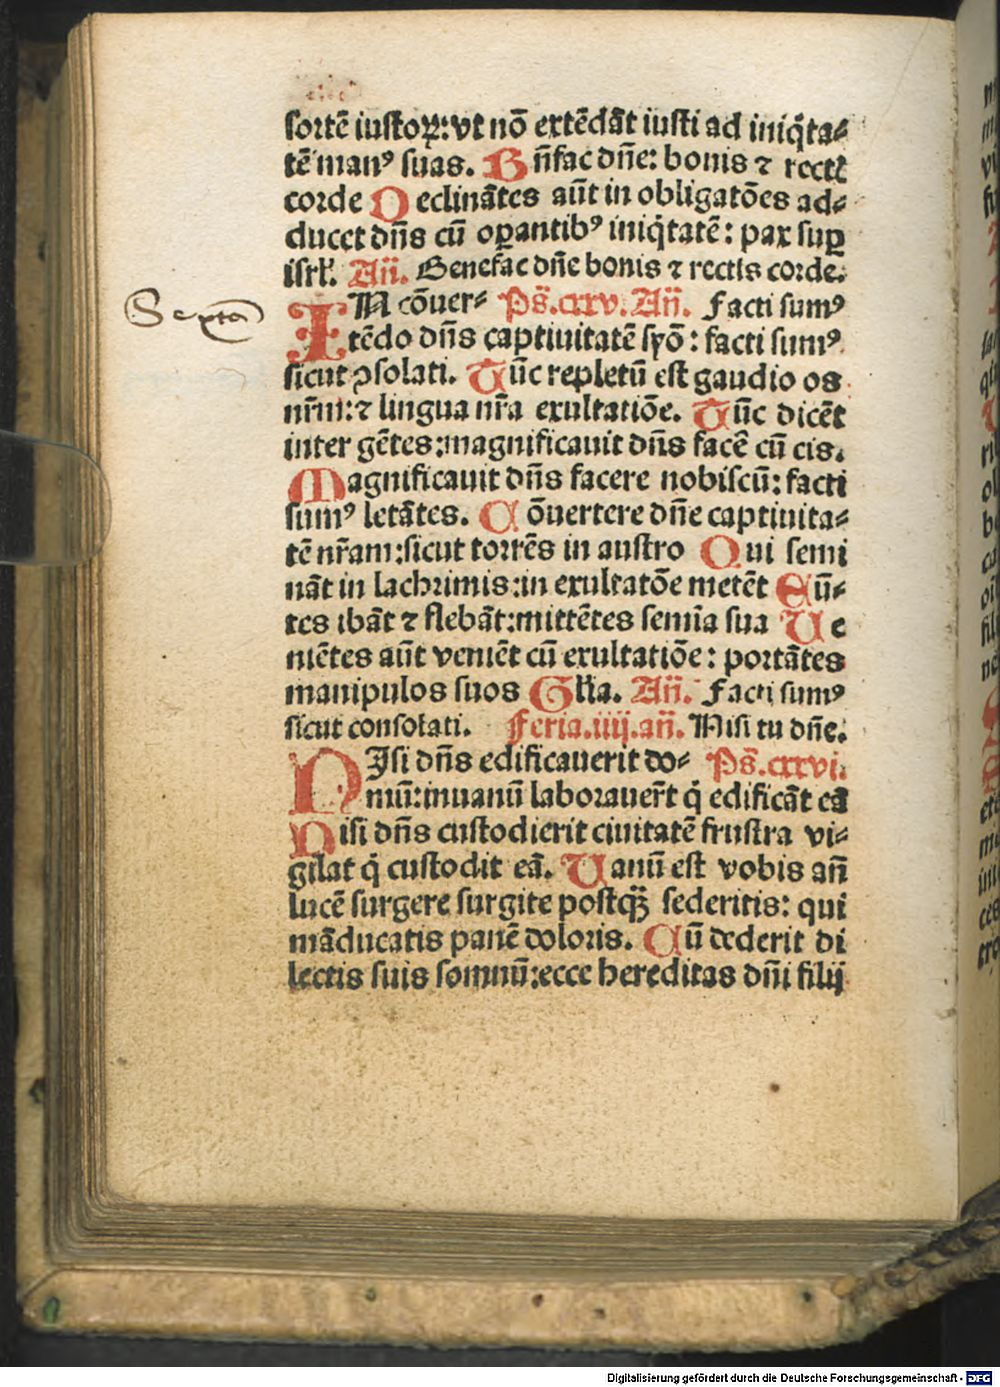 sortē iustoꝝ: vt nō extēdāt iusti ad iniq̇ta⸗
tē manꝰ suas. Bn̄fac dn̄e: bonis ⁊ recti
corde Declinātes aūt in obligatōes ad⸗
ducet dn̄s cū oꝑantibꝰ iniq̇tatē: pax suꝑ
isrl̓. An̄. Benefac dn̄e bonis ⁊ rectis corde.
Sexta
IN cōuer⸗ Ps̄.cxxv. An̄. Facti sumꝰ
tēdo dn̄s captiuitatē syō: facti sumꝰ
sicut ꝯsolati. Tūc repletū est gaudio os
nr̄m: ⁊ lingua nr̄a exultatiōe. Tūc dicēt
inter gētes: magnificauit dn̄s facē cū eis.
Magnificauit dn̄s facere nobiscū: facti
sumꝰ letātes. Cōuertere dn̄e captiuita⸗
tē nr̄am: sicut torrēs in austro Qui semi
nāt in lachrimis: in exultatōe metēt Eū⸗
tes ibāt ⁊ flebāt: mittētes semīa sua Ve
niētes aūt veniēt cū exultatiōe: portātes
manipulos suos Gl̓ia. An̄. Facti sumꝰ
sicut consolati. Feria.iiij.an̄. Nisi tu dn̄e.
NIsi dn̄s edificauerit do⸗ Ps̄.cxxvi.
mū: inuanū laborauer̄t q̇ edificāt eā
Nisi dn̄s custodierit ciuitatē frustra vi⸗
gilat q̇ custodit eā. Vanū est vobis an̄
lucē surgere surgite postqꝫ̄ sederitis: qui
māducatis panē doloris. Cū dederit di
lectis suis somnū: ecce hereditas dn̄i filij
Digitalisierung gefördert durch die Deutsche Forschungsgemeinschaft - DFG